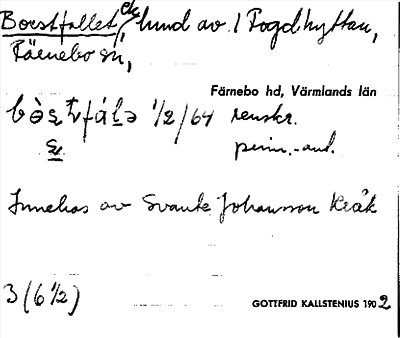 Borstfallet, hmd av 1 Fogdhyttan,
Färnebo sn,
Färnebo hd, Värmlands län
1/2/64 renskr.
Innehas av Svante Johansson Kråk
3 (6 1/2)
GOTTFRID KALLSTENIUS 1902